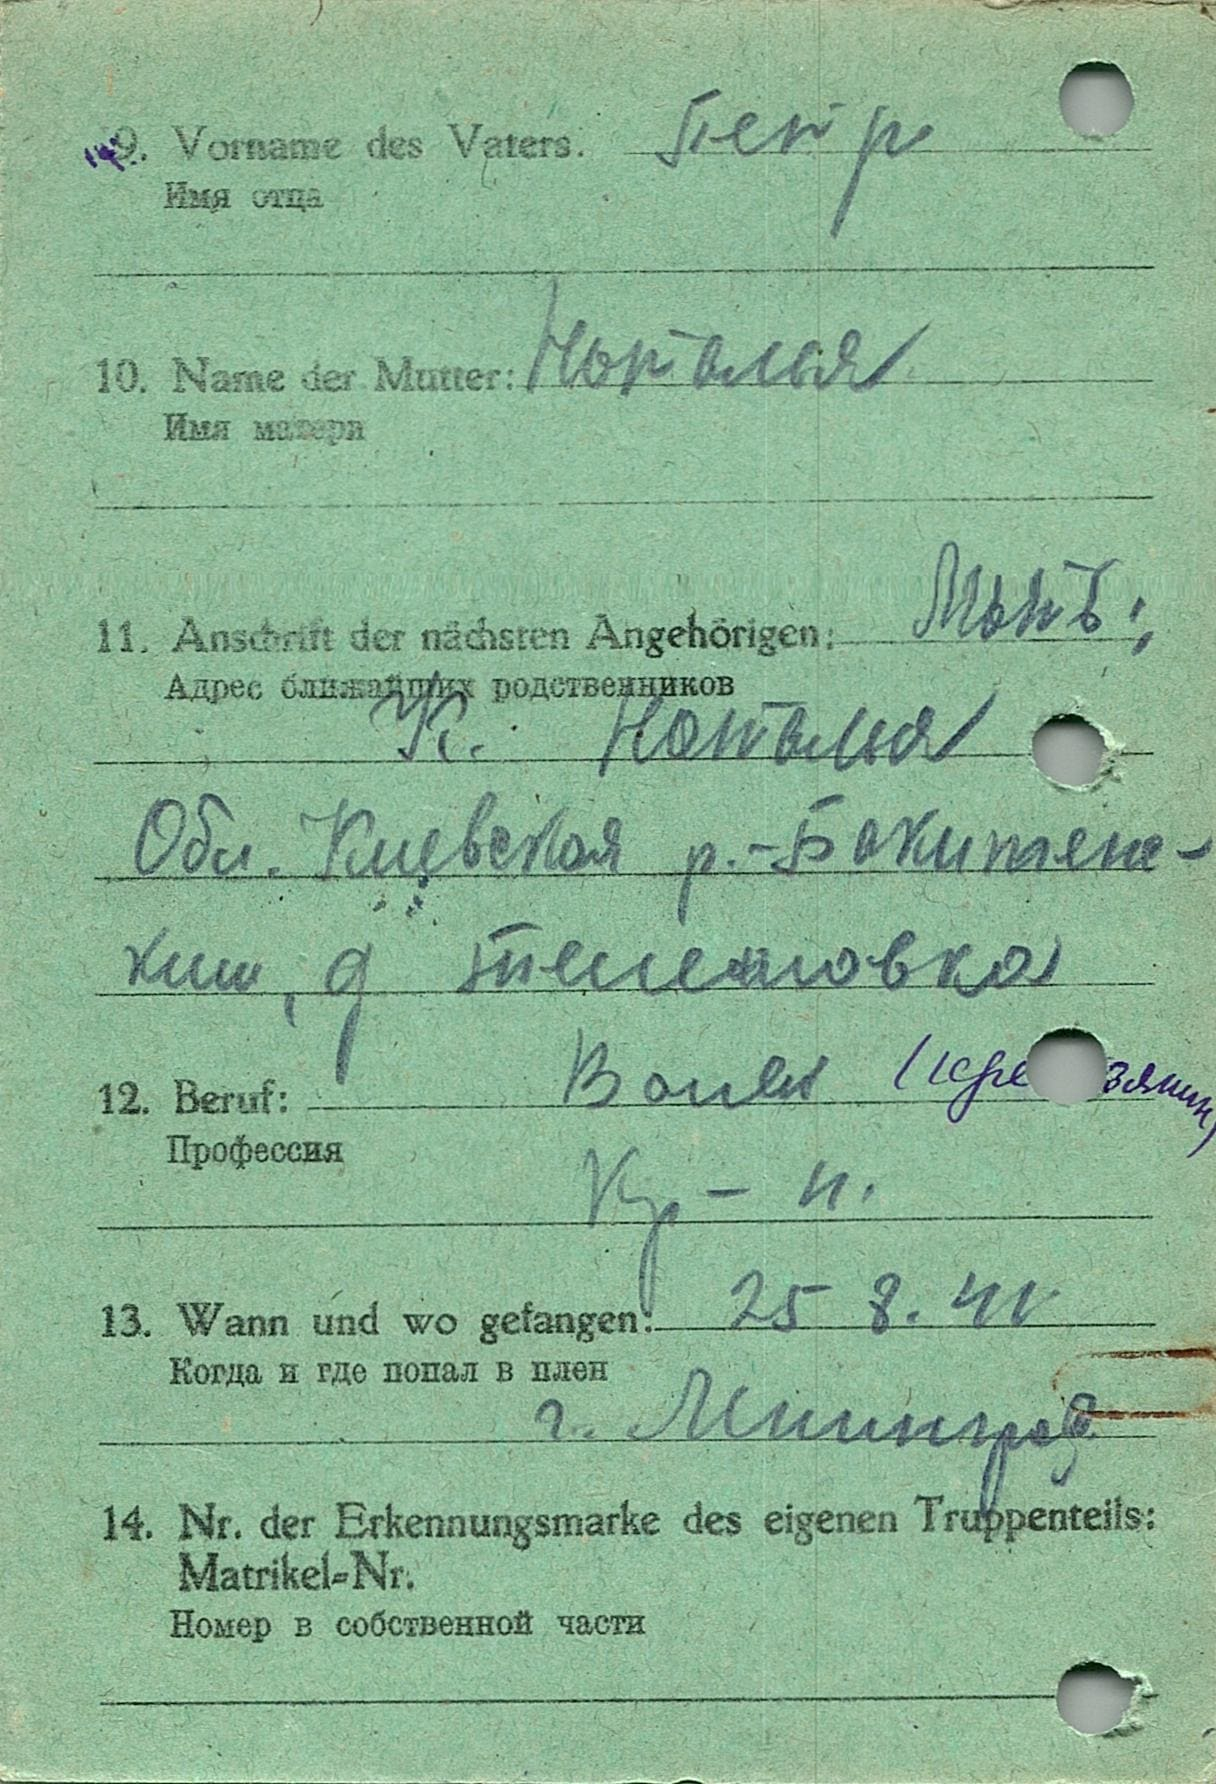 9. Vorname des Vaters. Петр
Имя отца
10. Name der Mutter: Наталья
Имя матери
11. Anschrift der nächsten Angehörigen: Мать;
Адрес ближайших родственников
К. Наталья
Обл. Киевская р.-
д
12. Beruf: (кре зянин)
Профессия
Кр-н.
13. Wann und wo gefangen: 25 8. 41
Когда и где попал в плен
г.
14. Nr. der Erkennungsmarke des eigenen Truppenteils:
Matrikel=Nr.
Номер в собственной части